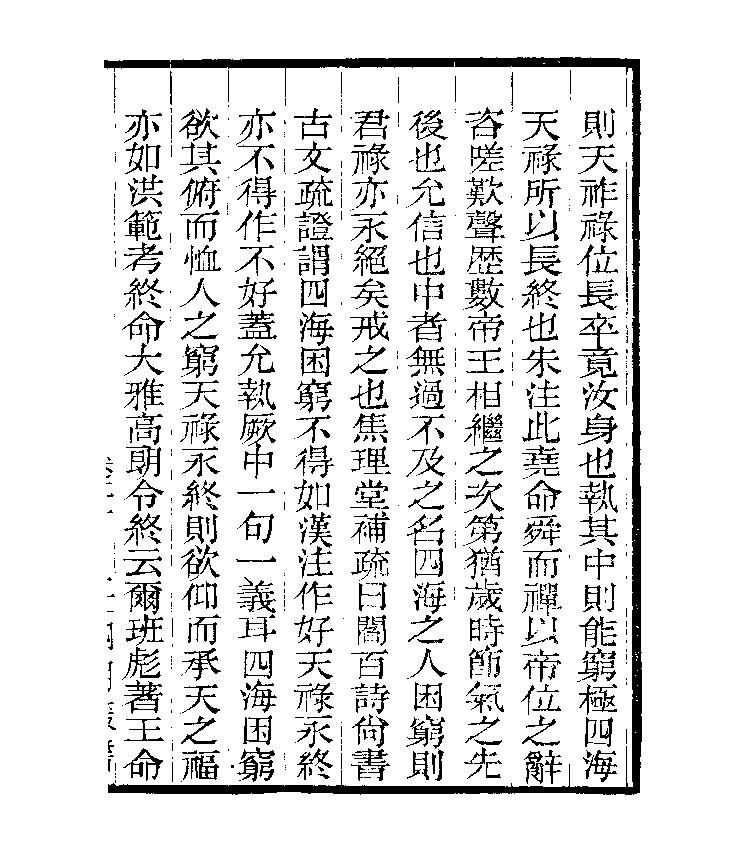 則天祚祿位長卒竟汝身也執其中則能窮極四海
天祿所以長終也朱注此堯命舜而禪以帝位之辭
咨嗟歎聲歷數帝王相繼之次第猶歲時節氣之先
後也允信也中者無過不及之名四海之人困窮則
君祿亦永絕矣戒之也焦理堂補疏曰閻百詩尙書
古文疏證謂四海困窮不得如漢注作好天祿永終
亦不得作不好蓋允執厥中一句一義耳四海困窮
欲其俯而恤人之窮天祿永終則欲仰而承天之福
亦如洪範考終命大雅高朗令終云爾班彪著王命